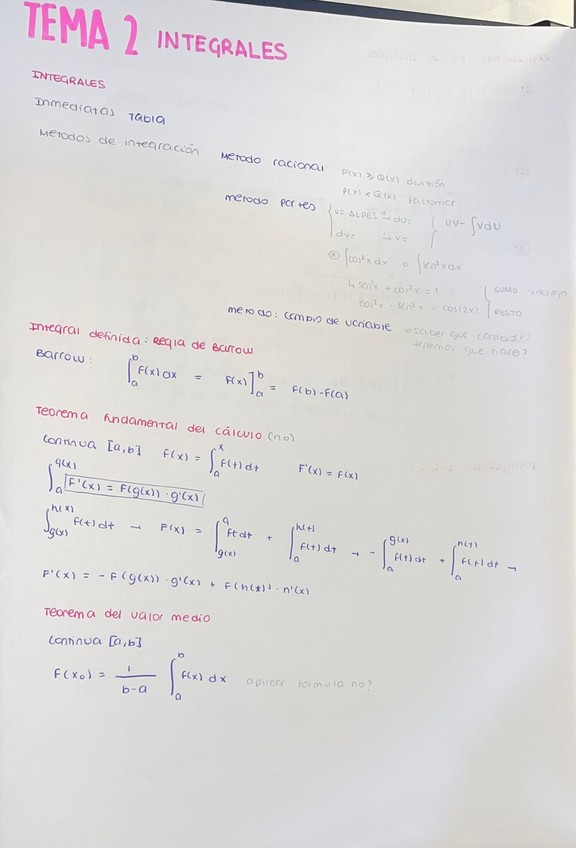 TEMA 2 INTEGRALES
INTEGRALES
Inmediatas Tabla
Metodos de integración Metodo racional P(x) ⩾ Q(x) división
P(x) < Q(x)
metodo partes { u = ALPES → du = { uv - ∫vdu
dv = ↳ v =
∫cos²x dx o ∫sen²x dx
↳ sen²x + cos²x = 1 { SUMO
cos²x - sen²x = cos(2x) RESTO
metodo: cambio de variable
tenemos que hacer?
Integral definida: Regla de Barrow
Barrow: ∫ₐᵇ F(x) dx = F(x)]ₐᵇ = F(b) - F(a)
Teorema fundamental del cálculo (no)
continua [a,b] F(x) = ∫ₐˣ F(t) dt F'(x) = F(x)
∫ₐ^g(x) F'(x) = F(g(x)) · g'(x)
∫_g(x)^h(x) F(t) dt → F(x) = ∫_g(x)^a Ft dt + ∫ₐ^h(t) F(t) dt → - ∫ₐ^g(x) F(t) dt + ∫ₐ^h(t) F(t) dt →
F'(x) = - F(g(x)) · g'(x) + F(h(x)) · h'(x)
Teorema del valor medio
continua [a,b]
F(x₀) = 1/(b-a) ∫ₐᵇ F(x) dx aplicar formula no?